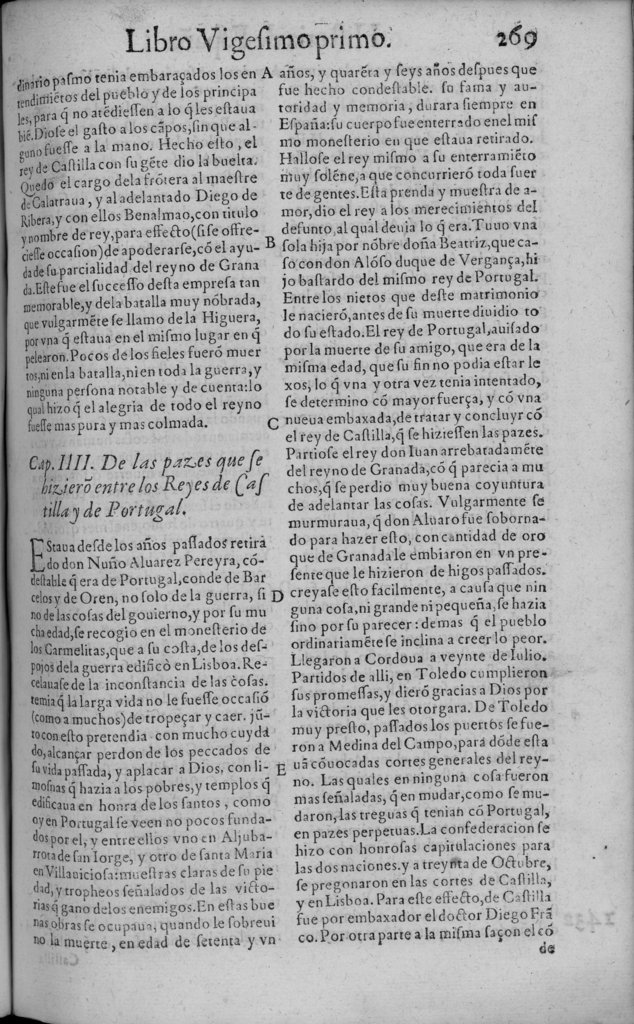 Libro Vigesimoprimo. 269
dinario pasmo tenia embaraçados los en
tendimiẽtos del pueblo y de los principa
les, para q̃ no atẽdiessen a lo q̃ les estaua
biẽ. Diose el gasto a los cãpos, sin que al-
guno fuesse a la mano. Hecho esto, el
rey de Castilla con su gẽte dio la buelta.
Quedo el cargo dela frõtera al maestre
de Calatraua, y al adelantado Diego de
Ribera, y con ellos Benalmao, con titulo
y nombre de rey, para effecto (si se offre-
ciesse occasion) de apoderarse, cõ el ayu-
da de su parcialidad del reyno de Grana
da. Este fue el successo desta empresa tan
memorable, y de la batalla muy nõbrada,
que vulgarmẽte se llamo de la Higuera,
por vna q̃ estaua en el mismo lugar en q̃
pelearon. Pocos de los fieles fuerõ muer
tos, ni en la batalla, ni en toda la guerra, y
ninguna persona notable y de cuenta: lo
qual hizo q̃ el alegria de todo el reyno
fuesse mas pura y mas colmada.
Cap. IIII. De las pazes que se
hizierõ entre los Reyes de Cas
tilla y de Portugal.
EStaua desde los años passados retira
do don Nuño Aluarez Pereyra, cõ-
destable q̃ era de Portugal, conde de Bar
celos y de Oren, no solo de la guerra, si
no de las cosas del gouierno, y por su mu
cha edad, se recogio en el monesterio de
los Carmelitas, que a su costa, de los des-
pojos dela guerra edificò en Lisboa. Re-
celauase de la inconstancia de las cosas.
temia q̃ la larga vida no le fuesse occasiõ
(como a muchos) de tropeçar y caer. jũ-
to con esto pretendia con mucho cuyda
do, alcançar perdon de los peccados de
su vida passada, y aplacar a Dios, con li-
mosnas q̃ hazia a los pobres, y templos q̃
edificaua en honra de los santos, como
oy en Portugal se veen no pocos funda-
dos por el, y entre ellos vno en Aljuba-
rrota de san Iorge, y otro de santa Maria
en Villauiciosa: muestras claras de su pie
dad, y tropheos señalados de las victo-
rias q̃ gano delos enemigos. En estas bue
nas obras se ocupaua, quando le sobreui
no la muerte, en edad de setenta y vn
A
B
C
D
E
años, y quarẽta y seys años despues que
fue hecho condestable. su fama y au-
toridad y memoria, durara siempre en
España: su cuerpo fue enterrado enel mis
mo monesterio en que estaua retirado.
Hallose el rey mismo a su enterramiẽto
muy solẽne, a que concurrierõ toda suer
te de gentes. Esta prenda y muestra de a-
mor, dio el rey a los merecimientos del
defunto, al qual deuia lo q̃ era. Tuuo vna
sola hija por nõbre doña Beatriz, que ca-
so con don Alõso duque de Vergança, hi
jo bastardo del mismo rey de Portugal.
Entre los nietos que deste matrimonio
le nacierõ, antes de su muerte diuidio to
do su estado. El rey de Portugal, auisado
por la muerte de su amigo, que era de la
misma edad, que su fin no podia estar le
xos, lo q̃ vna y otra vez tenia intentado,
se determino cõ mayor fuerça, y cõ vna
nueua embaxada, de tratar y concluyr cõ
el rey de Castilla, q̃ se hiziessen las pazes.
Partiose el rey don Iuan arrebatadamẽte
del reyno de Granada, cõ q̃ parecia a mu
chos, q̃ se perdio muy buena coyuntura
de adelantar las cosas. Vulgarmente se
murmuraua, q̃ don Aluaro fue soborna-
do para hazer esto, con cantidad de oro
que de Granada le embiaron en vn pre-
sente que le hizieron de higos passados.
creyase esto facilmente, a causa que nin
guna cosa, ni grande ni pequeña, se hazia
sino por su parecer: demas q̃ el pueblo
ordinariamẽte se inclina a creer lo peor.
Llegaron a Cordoua a veynte de Iulio.
Partidos de alli, en Toledo cumplieron
sus promessas, y dierõ gracias a Dios por
la victoria que les otorgara. De Toledo
muy presto, passados los puertos se fue-
ron a Medina del Campo, para dõde esta
uã cõuocadas cortes generales del rey-
no. Las quales en ninguna cosa fueron
mas señaladas, q̃ en mudar, como se mu-
daron, las treguas q̃ tenian cõ Portugal,
en pazes perpetuas. La confederacion se
hizo con honrosas capitulaciones para
las dos naciones. y a treynta de Octubre,
se pregonaron en las cortes de Castilla,
y en Lisboa. Para este effecto, de Castilla
fue por embaxador el doctor Diego Frã
co. Por otra parte a la misma façon el cõ
de